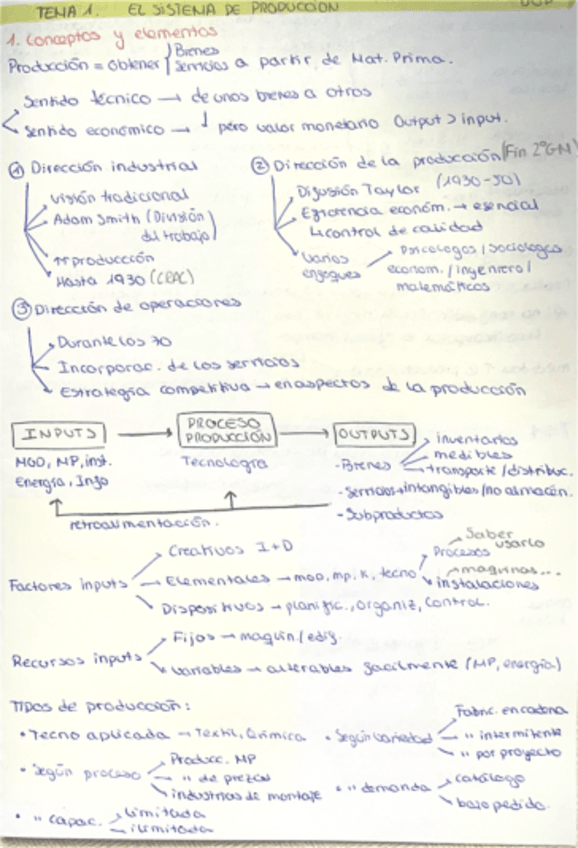 TEMA 1. EL SISTEMA DE PRODUCCIÓN
1. Conceptos y elementos
Bienes
Producción = obtener servicios a partir de Mat. Prima.
Sentido técnico → de unos bienes a otros
Sentido económico → ↓ pero valor monetario Output > input.
① Dirección industrial
visión tradicional
Adam Smith (División
del trabajo)
↑↑ producción
Hasta 1930 (CRAC)
② Dirección de la producción (Fin 2ªGM)
Difusión Taylor (1930-50)
Eficiencia económ. → esencial
control de calidad
varios
enfoques
Psicólogos / Sociólogos
econom. / ingeniero /
matemáticos
③ Dirección de operaciones
Durante los 70
Incorporac. de los servicios
Estrategia competitiva → en aspectos de la producción
INPUTS → PROCESO PRODUCCIÓN → OUTPUTS
MOD, MP, inst.
Energía, Info
Tecnología
- Bienes
inventarios
medibles
transporte / distribuc.
- Servicios → intangibles / no almacén.
- Subproductos
retroalimentación.
Factores inputs
Creativos I+D
Elementales → MOD, mp, K, tecno
Procesos
Saber
usarlo
maquinas...
instalaciones
Dispositivos → planific., organiz, control.
Recursos inputs
Fijos → maquin / edif.
Variables → alterables facilmente (MP, energía)
Tipos de producción:
• Tecno aplicada → Textil, Química
• Según proceso
Producc. MP
" de piezas
industrias de montaje
• " capac.
Limitada
ilimitada
• Según variedad
Fabric. en cadena
" intermitente
" por proyecto
• " demanda
catálogo
bajo pedido.